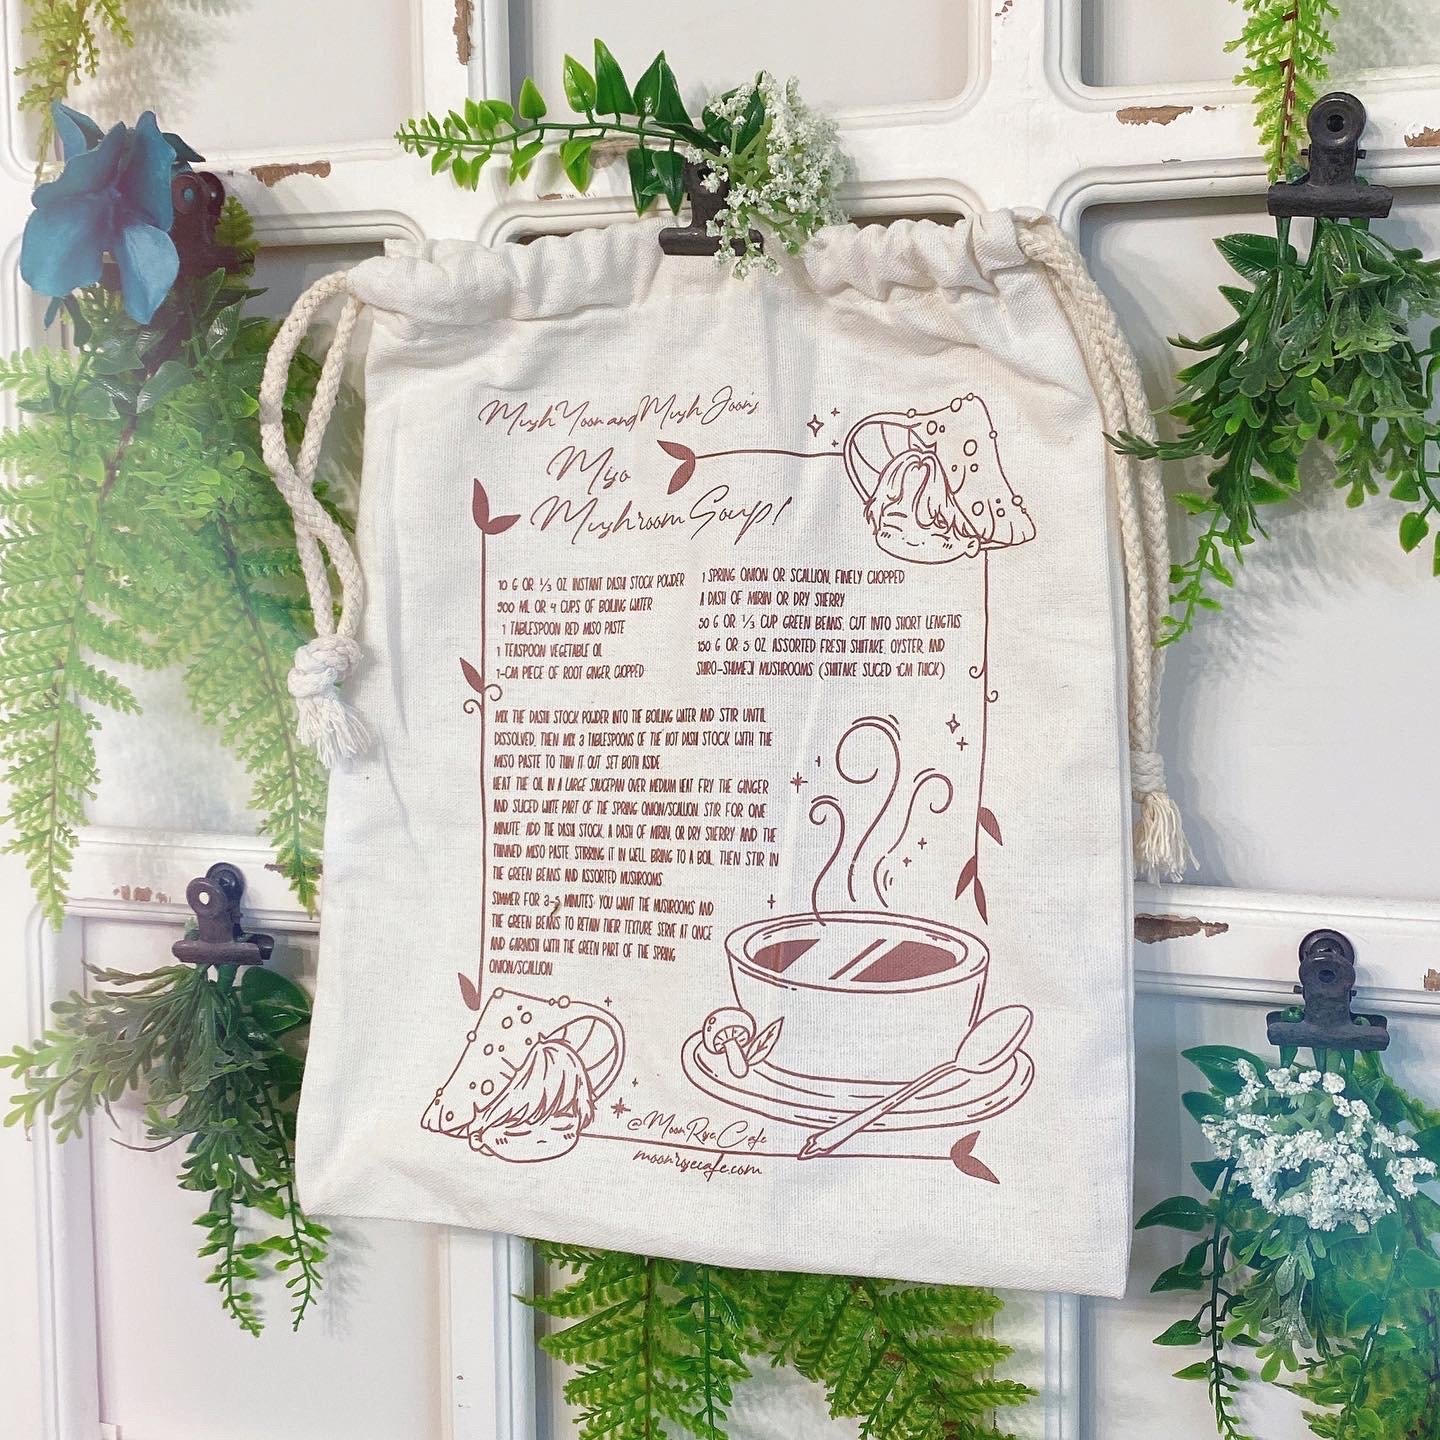 Mush Yoon and Mush Joon's
Miso
Mushroom Soup!
10 G OR 1/3 OZ INSTANT DASHI STOCK POWDER
900 ML OR 4 CUPS OF BOILING WATER
1 TABLESPOON RED MISO PASTE
1 TEASPOON VEGETABLE OIL
1-CM PIECE OF ROOT GINGER, CHOPPED
1 SPRING ONION OR SCALLION, FINELY CHOPPED
A DASH OF MIRIN OR DRY SHERRY
50 G OR 1/3 CUP GREEN BEANS, CUT INTO SHORT LENGTHS
150 G OR 5 OZ ASSORTED FRESH SHIITAKE, OYSTER, AND
SHIRO-SHIMEJI MUSHROOMS (SHIITAKE SLICED 1CM THICK)
MIX THE DASHI STOCK POWDER INTO THE BOILING WATER AND STIR UNTIL
DISSOLVED, THEN MIX 3 TABLESPOONS OF THE HOT DASHI STOCK WITH THE
MISO PASTE TO THIN IT OUT. SET BOTH ASIDE.
HEAT THE OIL IN A LARGE SAUCEPAN OVER MEDIUM HEAT. FRY THE GINGER
AND SLICED WHITE PART OF THE SPRING ONION/SCALLION. STIR FOR ONE
MINUTE. ADD THE DASHI STOCK, A DASH OF MIRIN, OR DRY SHERRY AND THE
THINNED MISO PASTE, STIRRING IT IN WELL. BRING TO A BOIL, THEN STIR IN
THE GREEN BEANS AND ASSORTED MUSHROOMS.
SIMMER FOR 3-5 MINUTES. YOU WANT THE MUSHROOMS AND
THE GREEN BEANS TO RETAIN THEIR TEXTURE. SERVE AT ONCE
AND GARNISH WITH THE GREEN PART OF THE SPRING
ONION/SCALLION.
@MoonRoseCafe
moonrosecafe.com